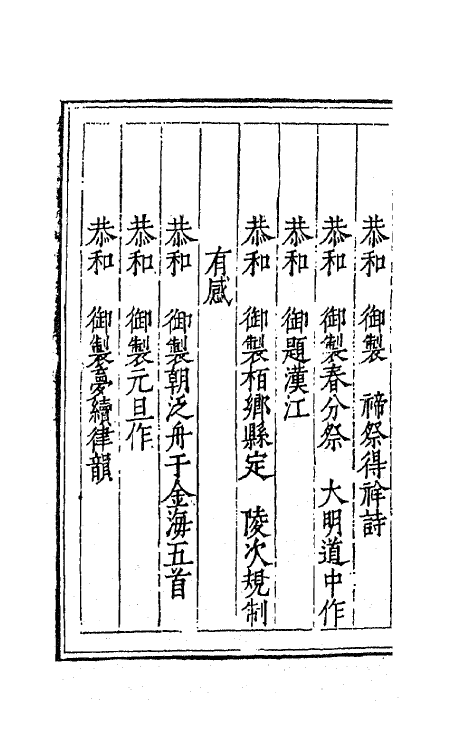 恭和　御製　禘祭得祥詩
恭和　御製春分祭　大明道中作
恭和　御題漢江
恭和　御製栢鄉縣定　陵次規制
有感
恭和　御製朝泛舟于金海五首
恭和　御製元旦作
恭和　御製夢續律韻